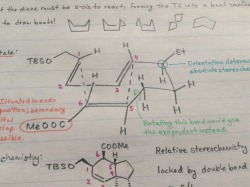 the diene must be s-cis to react, forcing the TS into a boat
tate:
H
Et
TBSO
H
Orientation determines
absolute stereoche
Situated in endo
position, secondary
tal
rlap
ssible.
MeOOC
H
Rotating this bond would give
the exo product instead.
chemistry:
COOMe
Relative stereochemistry
TBSO
H
locked by double bond